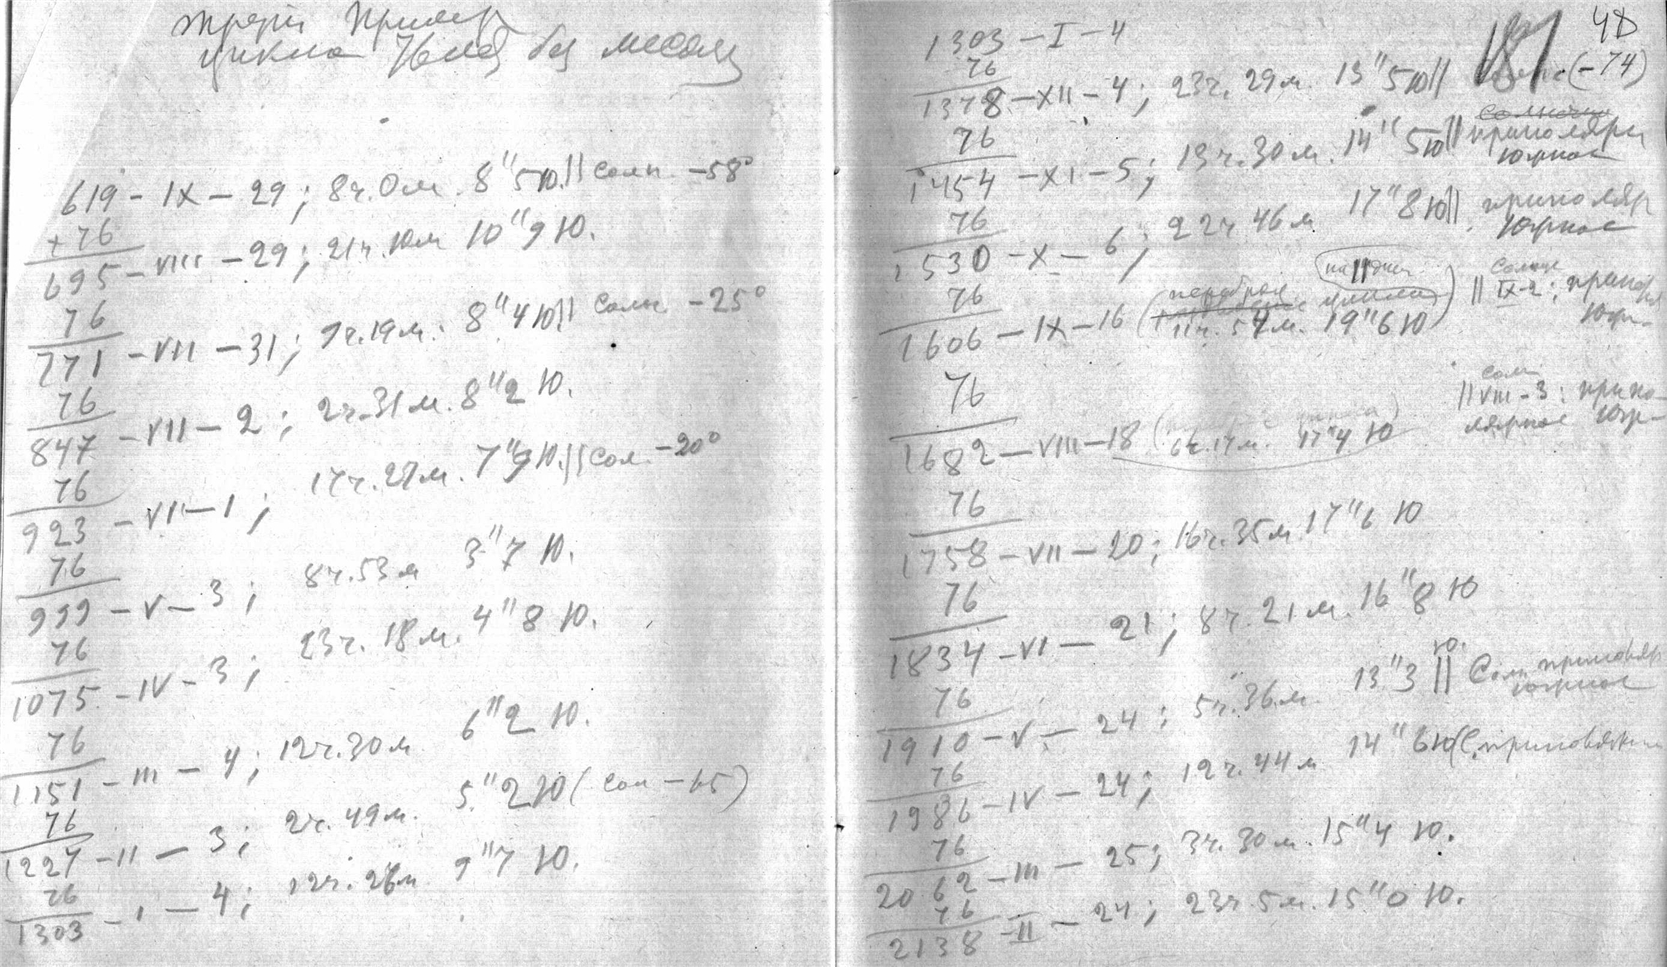 Третий Пример
цикла 76 лет без месяц
619 - IX - 29; 8ч. 0м. 8"5 Ю. || Солн. -58°
+ 76
695 - VIII - 29; 21ч. 10м 10"9 Ю.
76
771 - VII - 31; 9ч. 19м. 8"4 Ю || Солн -25°
76
847 - VII - 2; 2ч. 31м. 8"2 Ю.
76
923 - VII - 1; 17ч. 27м. 7"9 Ю. || Сол. -20°
76
999 - V - 3; 8ч. 53м 3"7 Ю.
76
1075 - IV - 3; 23ч. 18м. 4"8 Ю.
76
1151 - III - 4; 12ч. 30м 6"2 Ю.
76
1227 - II - 3; 2ч. 49м. 5"2 Ю (Сол -65)
76
1303 - I - 4; 12ч. 26м 9"7 Ю.
48
181
1303 - I - 4
76
1378 - XII - 4; 23ч. 29м. 13"5 Ю || (-74)
76
1454 - XI - 5; 13ч. 30м. 14"5 Ю || приполярн
Южное
76
1530 - X - 6; 22ч 46м 17"8 Ю || приполяр
Южное
76
1606 - IX - 16 (11ч. 54м. 19"6 Ю) || Солнце IX-2; припол
76
1682 - VIII - 18 (6ч. 17м. 17"4 Ю || Солн VIII-3; припо-
лярное Юж-
76
1758 - VII - 20; 16ч. 35м. 17"6 Ю
76
1834 - VI - 21; 8ч. 21м. 16"8 Ю
76
1910 - V - 24; 5ч. 36м. 13"3 Ю. || Солн приполяр
южное
76
1986 - IV - 24; 12ч. 44м 14"6 Ю (С. приполярн
76
2062 - III - 25; 3ч. 30м. 15"4 Ю.
76
2138 - II - 24; 23ч. 5м. 15"0 Ю.